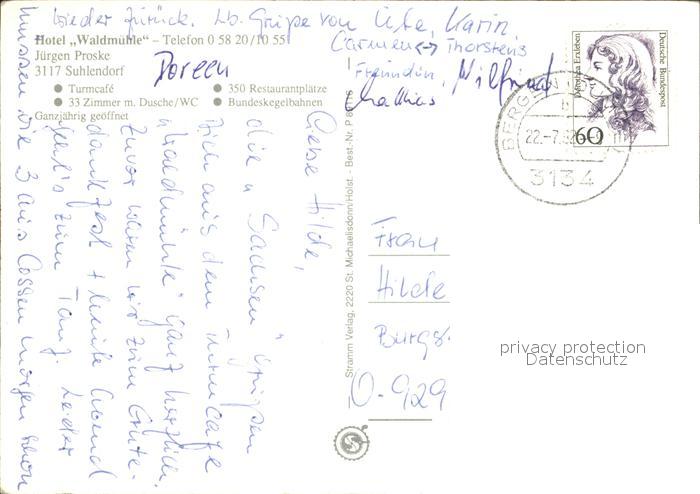 Hotel „Waldmühle" – Telefon 0 58 20/10 55
Jürgen Proske
3117 Suhlendorf
● Turmcafé
● 350 Restaurantplätze
● 33 Zimmer m. Dusche/WC
● Bundeskegelbahnen
Ganzjährig geöffnet
Liebe Hilde,
die 4 "Sachsen" grüßen
Dich aus dem Turmcafe
"Waldmühle" ganz herzlich.
Zuvor waren wir zum Ernte-
dankfest + heute Abend
geht's zum Tanz. Leider
müssen die 3 aus Cossen morgen schon
wieder zurück. Lb. Grüße von Ute, Karin,
Carmen <-> Thorstens
Freundin, Wilfried
Matthias
Doreen
Stramm Verlag, 2220 St. Michaelisdonn/Holst. - Best. Nr. P
Dorothea Erxleben
Deutsche Bundespost
60
BERGEN
b
22.-7.92
3134
Frau
Hilde
Burgs.
O-929
privacy protection
Datenschutz